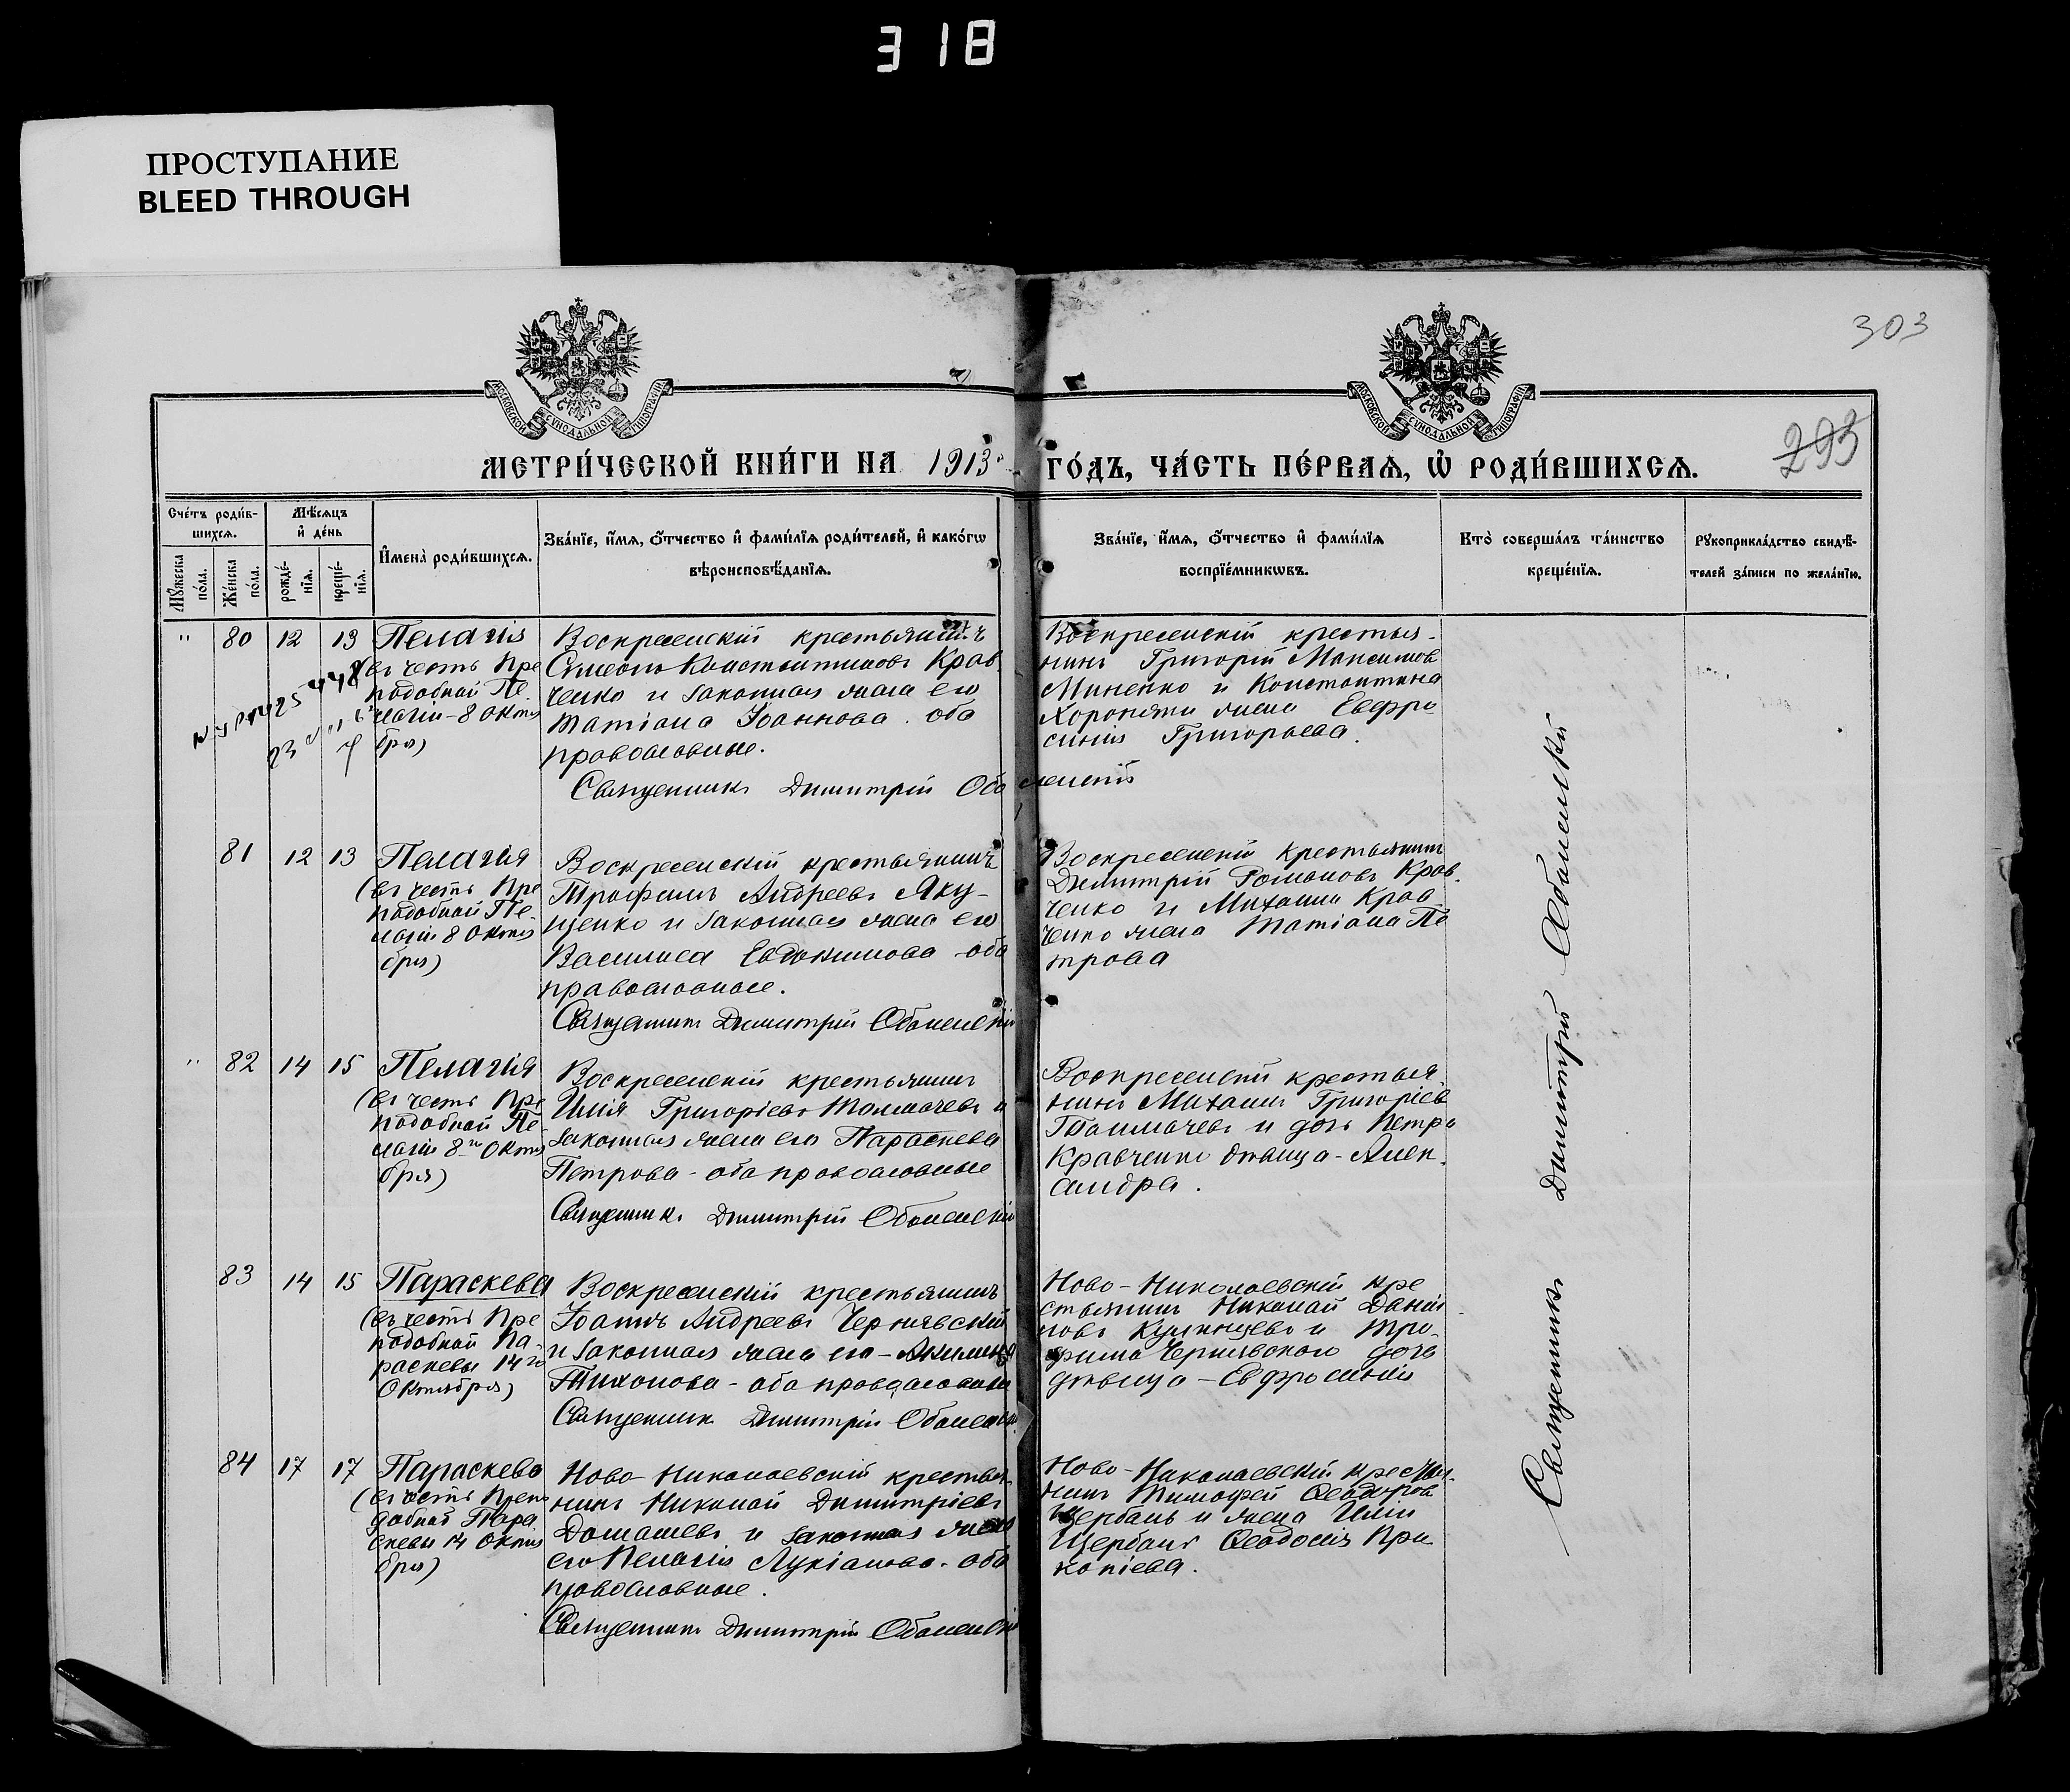 318
ПРОСТУПАНИЕ
BLEED THROUGH
303
293
МОСКОВСКОЙ СѴНОДАЛЬНОЙ ТИПОГРАФІИ
МОСКОВСКОЙ СѴНОДАЛЬНОЙ ТИПОГРАФІИ
МЕТРИ́ЧЕСКОЙ КНИ́ГИ НА 1913 ГО́ДЪ, ЧА́СТЬ ПЕ́РВАѦ, Ѡ҆ РОДИ́ВШИХСѦ.
Сче́тъ роди́в-
шихсѧ.
Мꙋ́жеска по́ла.
Же́нска по́ла.
Мѣ́сѧцъ
и҆ де́нь
рожде́-
нїѧ.
креще́-
нїѧ.
И҆мена̀ роди́вшихсѧ.
Зва́нїе, и҆́мѧ, ѻ҆́тчество и҆ фами́лїѧ роди́телей, и҆ како́гѡ
вѣроисповѣ́данїѧ.
Зва́нїе, и҆́мѧ, ѻ҆́тчество и҆ фами́лїѧ
воспрїе́мникѡвъ.
Кто̀ соверша́лъ та́инство
креще́нїѧ.
Рꙋкоприкла́дство свидѣ́-
телей за́писи по жела́нїю.
" 80 12 13 Пелагія
(въ честь Пре
подобной Пе-
лагіи - 8 Октя
бря)
Воскресенскій крестьянинъ
Симеонъ Константиновъ Крав-
ченко и законная жена его
Татіана Іоаннова оба
православные.
Священникъ Димитрій Оболенскій
Воскресенскій крестья-
нинъ Григорій Максимов
Миненко и Константина
жена Евфро
синія Григорьева.
81 12 13 Пелагія
(въ честь Пре
подобной Пе-
лагіи 8 Октя
бря)
Воскресенскій крестьянинъ
Трофимъ Андреевъ Яку-
ценко и законная жена его
Василиса Евдокимова - оба
православные.
Священникъ Димитрій Оболенскій
Воскресенскій крестьянинъ
Димитрій Романовъ Крав-
ченко и Михаила Крав-
ченко жена Татіана Пе
трова
" 82 14 15 Пелагія
(въ честь Пре
подобной Пе-
лагіи 8го Октя
бря)
Воскресенскій крестьянинъ
Илія Григоріевъ Толмачевъ и
законная жена его Параскева
Петрова - оба православные
Священникъ Димитрій Оболенскій
Воскресенскій крестья-
нинъ Михаилъ Григоріев
Толмачевъ и дочь Петра
Кравченко дѣвица - Алек-
сандра.
83 14 15 Параскева
(въ честь Пре
подобной Па-
раскевы 14го
Октября)
Воскресенскій крестьянинъ
Іоаннъ Андреевъ Чернявскій
и законная жена его - Акилина
Тихонова - оба православные
Священникъ Димитрій Оболенскій
Ново-Николаевскій кре
стьянинъ Николай Данiи-
ловъ и Тро-
фима Чернявскаго дочь
дѣвица - Евфросинія
84 17 17 Параскева
(въ честь Препо
добной Пара
скевы 14 Октя
бря)
Ново-Николаевскій крестья-
нинъ Николай Димитріевъ
Домашевъ и законная жена
его Пелагія Лукіанова - оба
православные.
Священникъ Димитрій Оболенскій
Ново-Николаевскій крестья-
нинъ Тимофей Ѳеодоров
Щербань и жена Иліи
Щербань Ѳеодосія Про
копіева.
Священникъ Димитрій Оболенскій